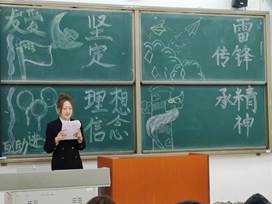 友爱
坚定
雷锋
传
互助进
理想
信念
承精
神